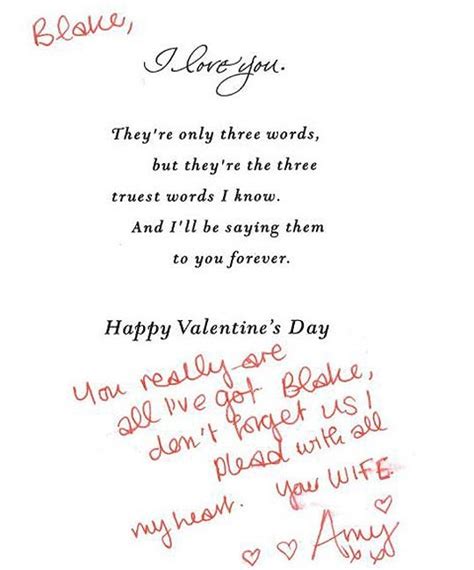 Blake,
I love you.
They're only three words,
but they're the three
truest words I know.
And I'll be saying them
to you forever.
Happy Valentine's Day
You really are
all I've got Blake,
don't forget us!
Plead with all
my heart. Your WIFE
Amy
xx